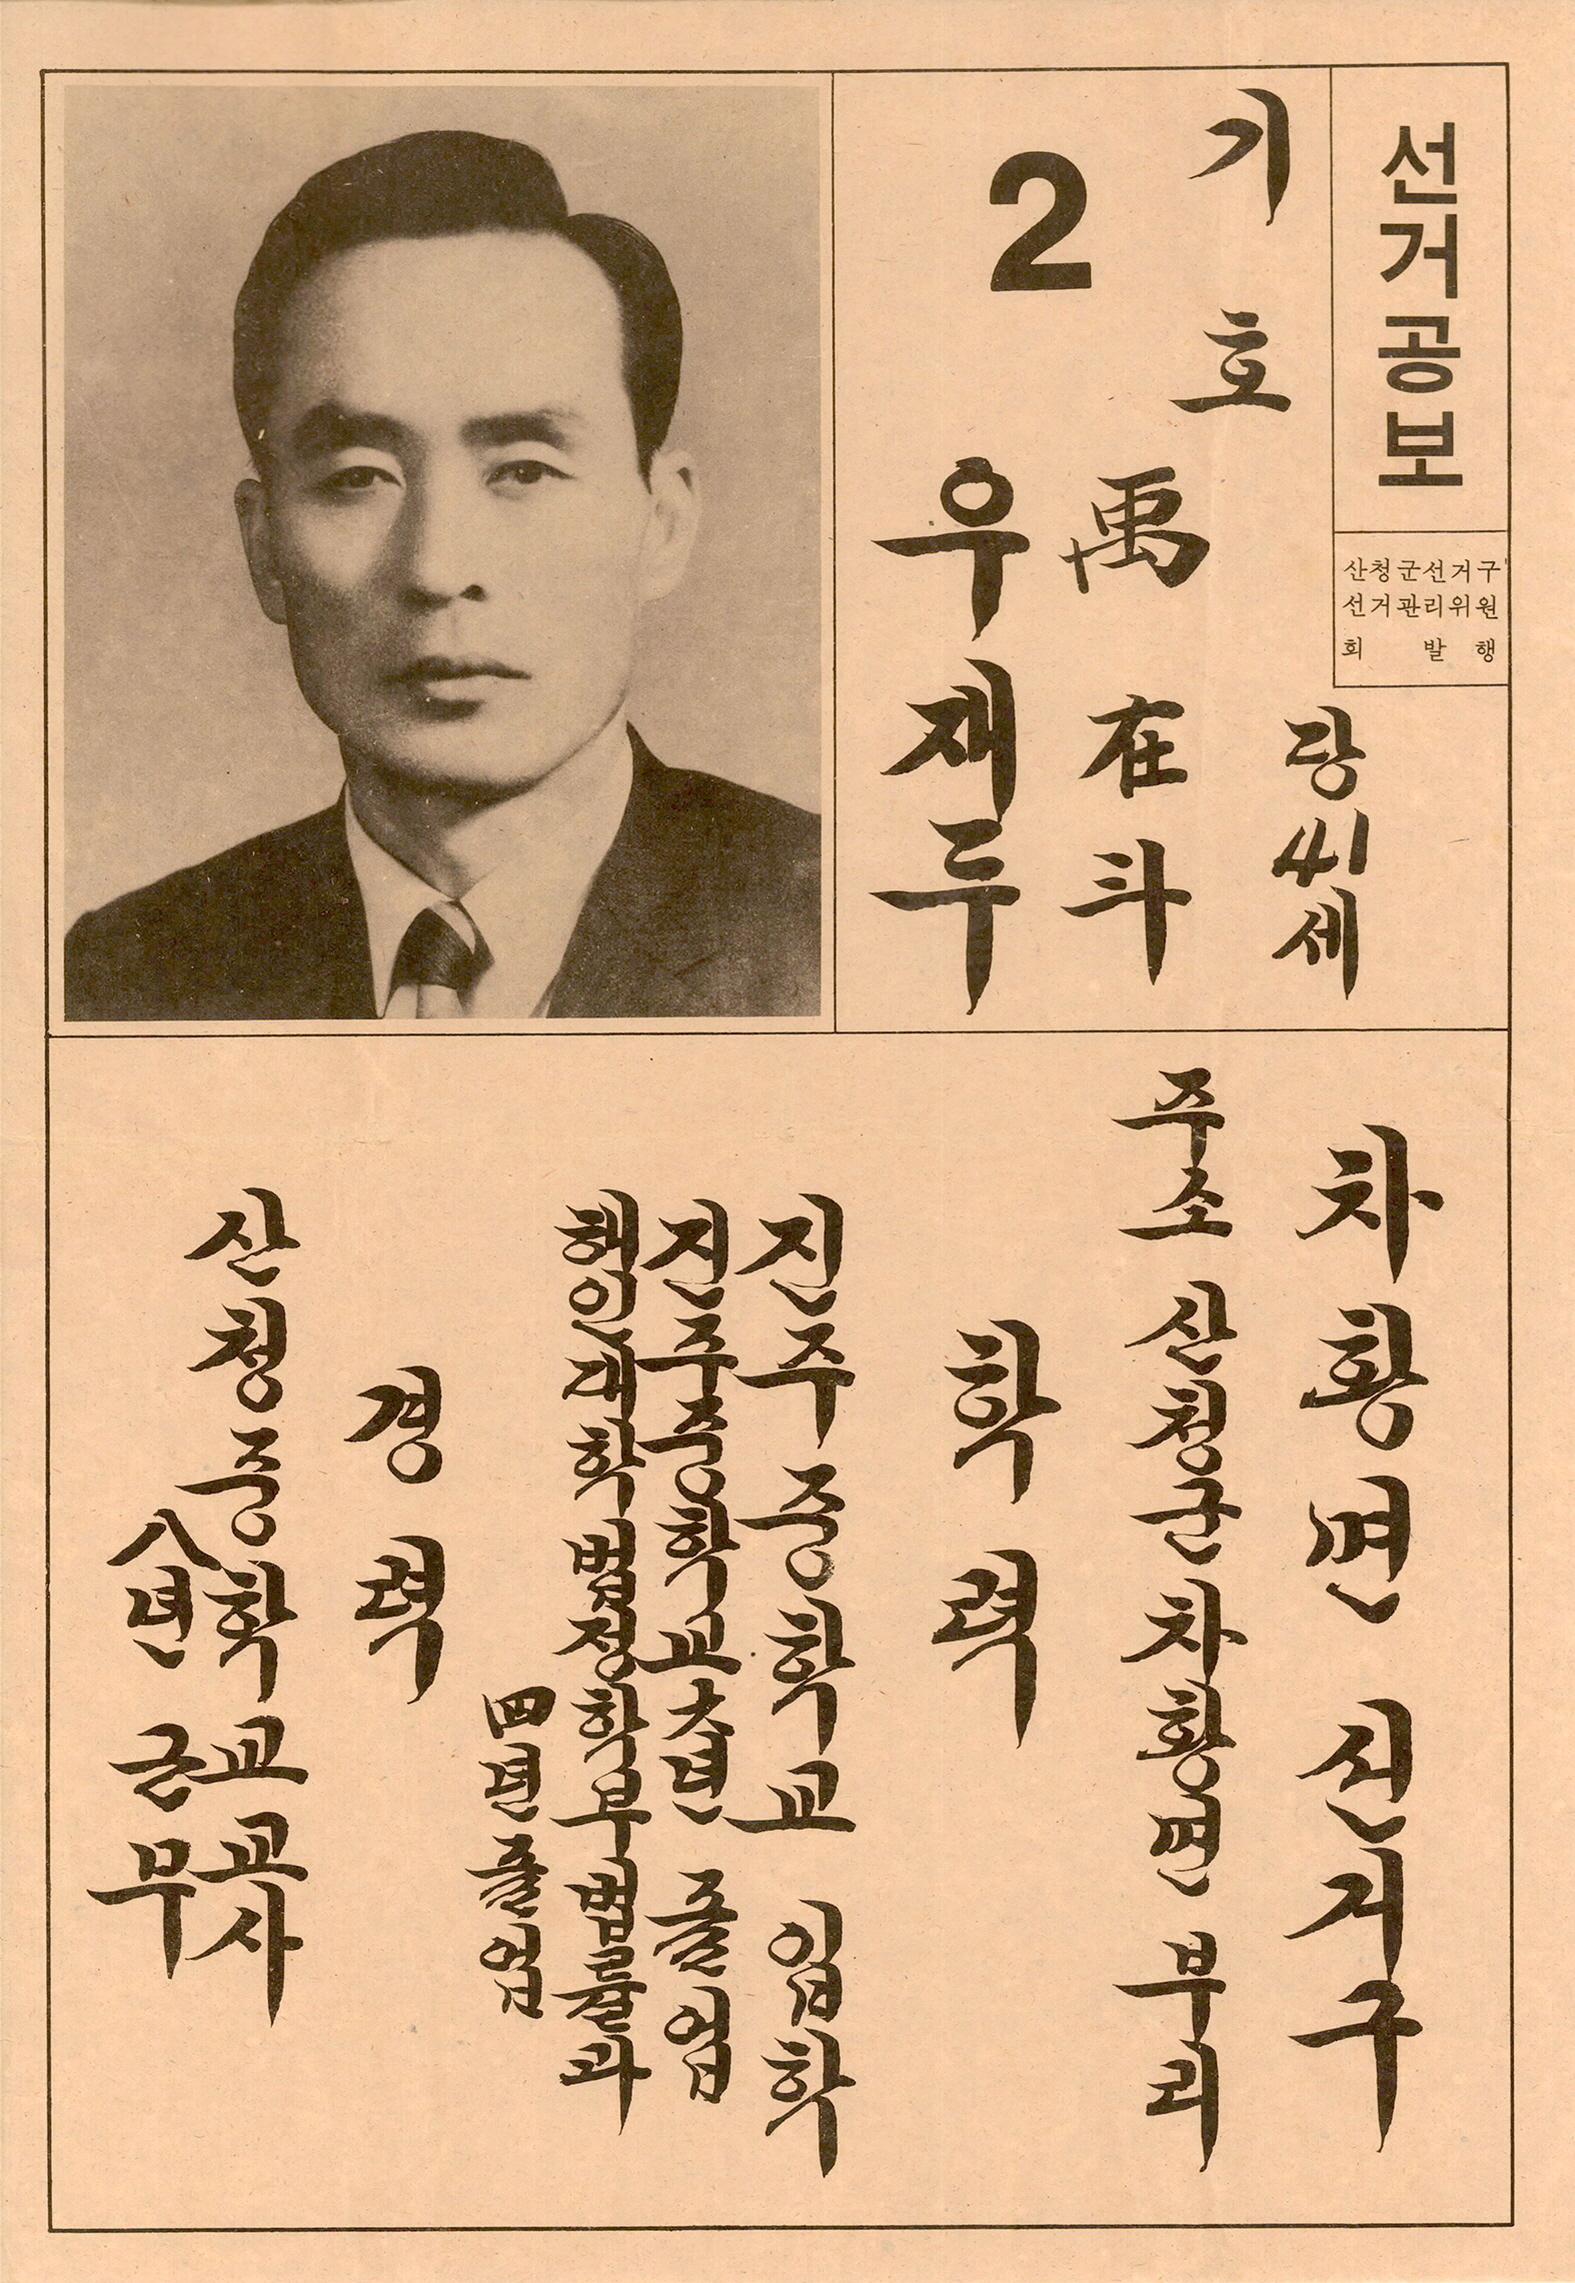 선거공보
산청군선거구
선거관리위원
회 발행
기호
2
당41세
禹在斗
우재두
차황면 선거구
주소 산청군 차황면 부리
학력
진주중학교 입학
진주중학교 六년 졸업
해인대학 법정학부 법률과
四년 졸업
경력
산청중학교 교사
八년 근무